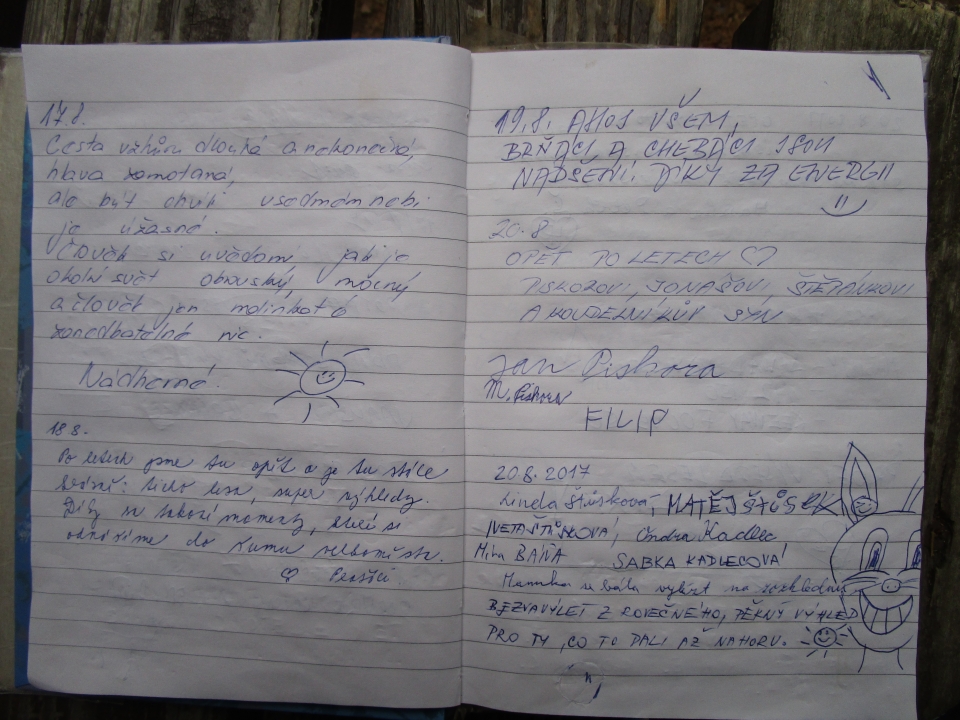 17.8.
Cesta vzhůru dlouhá a nekonečná,
hlava zamotaná,
ale být chvíli v sedmém nebi
je úžasné.
Člověk si uvědomí, jak je
okolní svět obrovský, mocný
a člověk jen malinkaté
zanedbatelné nic.
Nádherné.
18.8.
Po letech jsme tu opět a je tu stále
krásně: ticho lesa, super výhledy.
Díky za takové momenty, které si
odnášíme do
19.8. AHOJ VŠEM,
BRŇÁCI A CHEBÁCI JSOU
NADŠENÍ! DÍKY ZA ENERGII
20.8
OPĚT PO LETECH ♡
PISKOŘOVI, JONÁŠOVI, ŠTĚPÁNKOVI
A SYN
Jan Piskora
M. Piskora
FILIP
20.8.2017
Linda Štůsková, MATĚJ ŠTŮSEK
IVETA ŠTŮSKOVÁ, Ondra Kadlec
Míra BAŇA SABKA KADLECOVÁ
Mamka se bála vylézt na rozhlednu
BEZVA VÝLET Z ROVEČNÉHO, PĚKNÝ VÝHLED
PRO TY, CO TO DALI AŽ NAHORU.